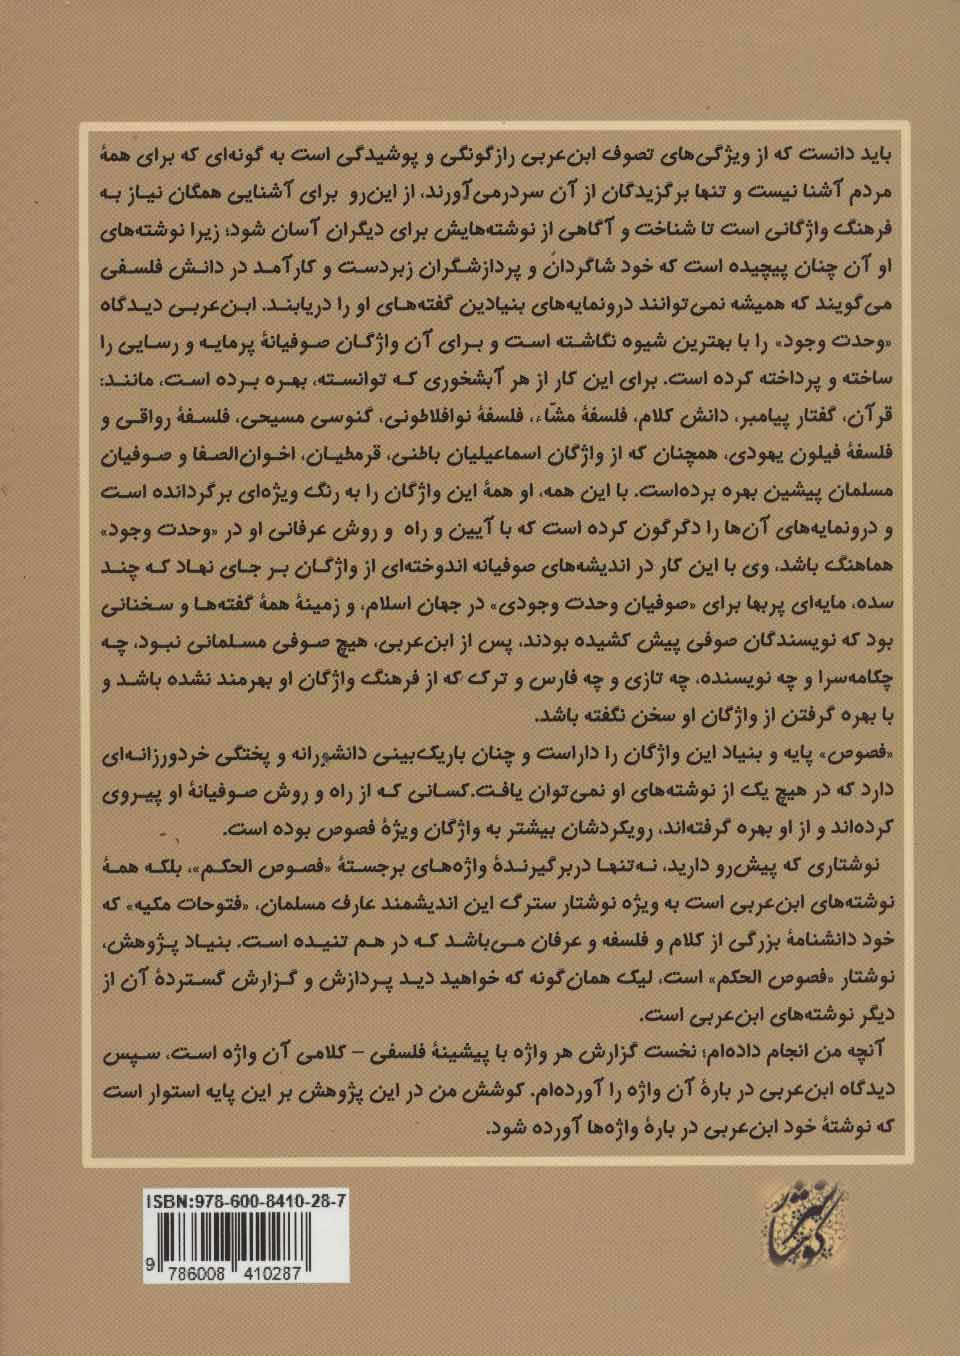 باید دانست که از ویژگی‌های تصوف ابن‌عربی رازگونگی و پوشیدگی است به گونه‌ای که برای همهٔ
مردم آشنا نیست و تنها برگزیدگان از آن سردرمی‌آورند، از این‌رو برای آشنایی همگان نیاز به
فرهنگ واژگانی است تا شناخت و آگاهی از نوشته‌هایش برای دیگران آسان شود؛ زیرا نوشته‌های
او آن چنان پیچیده است که خود شاگردان و پردازشگران زبردست و کارآمد در دانش فلسفی
می‌گویند که همیشه نمی‌توانند درونمایه‌های بنیادین گفته‌های او را دریابند. ابن‌عربی دیدگاه
«وحدت وجود» را با بهترین شیوه نگاشته است و برای آن واژگان صوفیانهٔ پرمایه و رسایی را
ساخته و پرداخته کرده است. برای این کار از هر آبشخوری که توانسته، بهره برده است، مانند:
قرآن، گفتار پیامبر، دانش کلام، فلسفهٔ مشّاء، فلسفهٔ نوافلاطونی، گنوسی مسیحی، فلسفهٔ رواقی و
فلسفهٔ فیلون یهودی، همچنان که از واژگان اسماعیلیان باطنی، قرمطیان، اخوان‌الصفا و صوفیان
مسلمان پیشین بهره برده‌است. با این همه، او همهٔ این واژگان را به رنگ ویژه‌ای برگردانده است
و درونمایه‌های آن‌ها را دگرگون کرده است که با آیین و راه و روش عرفانی او در «وحدت وجود»
هماهنگ باشد، وی با این کار در اندیشه‌های صوفیانه اندوخته‌ای از واژگان بر جای نهاد که چند
سده، مایه‌ای پربها برای «صوفیان وحدت وجودی» در جهان اسلام، و زمینهٔ همهٔ گفته‌ها و سخنانی
بود که نویسندگان صوفی پیش کشیده بودند، پس از ابن‌عربی، هیچ صوفی مسلمانی نبود، چه
چکامه‌سرا و چه نویسنده، چه تازی و چه فارس و ترک که از فرهنگ واژگان او بهرمند نشده باشد و
با بهره گرفتن از واژگان او سخن نگفته باشد.
«فصوص» پایه و بنیاد این واژگان را داراست و چنان باریک‌بینی دانشورانه و پختگی خردورزانه‌ای
دارد که در هیچ یک از نوشته‌های او نمی‌توان یافت.کسانی که از راه و روش صوفیانهٔ او پیروی
کرده‌اند و از او بهره گرفته‌اند، رویکردشان بیشتر به واژگان ویژهٔ فصوص بوده است.
نوشتاری که پیش‌رو دارید، نه‌تنها دربرگیرندهٔ واژه‌های برجستهٔ «فصوص الحکم»، بلکه همهٔ
نوشته‌های ابن‌عربی است به ویژه نوشتار سترگ این اندیشمند عارف مسلمان، «فتوحات مکیه» که
خود دانشنامهٔ بزرگی از کلام و فلسفه و عرفان می‌باشد که در هم تنیده است. بنیاد پژوهش،
نوشتار «فصوص الحکم» است، لیک همان‌گونه که خواهید دید پردازش و گزارش گستردهٔ آن از
دیگر نوشته‌های ابن‌عربی است.
آنچه من انجام داده‌ام؛ نخست گزارش هر واژه با پیشینهٔ فلسفی – کلامی آن واژه است، سپس
دیدگاه ابن‌عربی در بارهٔ آن واژه را آورده‌ام. کوشش من در این پژوهش بر این پایه استوار است
که نوشتهٔ خود ابن‌عربی در بارهٔ واژه‌ها آورده شود.
ISBN:978-600-8410-28-7
9 786008 410287